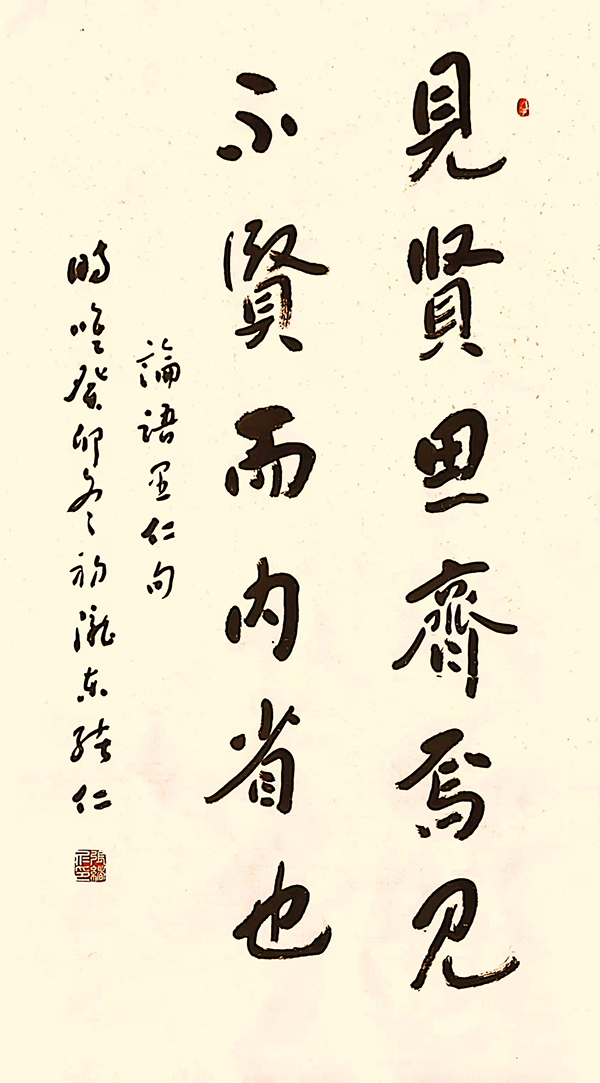 見賢思齊焉見
不賢而内省也
論語里仁句
時唯癸卯冬初瀧东緒仁